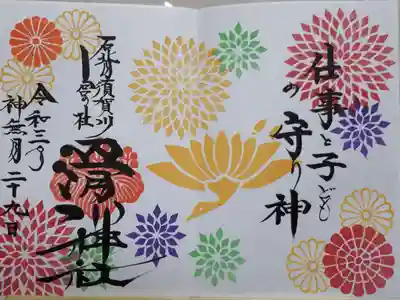 仕事と子ども
の守り神
石背須賀川
一号の社
滑川神社
令和三年
神無月二十九日